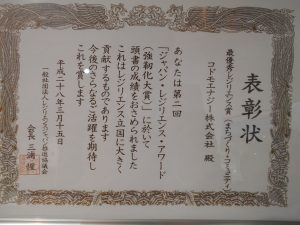 表彰状
最優秀レジリエンス賞(まちづくり・コミュニティ)
コドモエナジー株式会社 殿
あなたは第二回
「ジャパン・レジリエンス・アワード
(強靭化大賞)」に於いて
頭書の成績をおさめられました
これはレジリエンス立国に大きく
貢献するものであります
今後のさらなるご活躍を期待し
これを賞します
平成二十八年三月十五日
一般社団法人レジリエンスジャパン推進協議会
会長 三浦惺